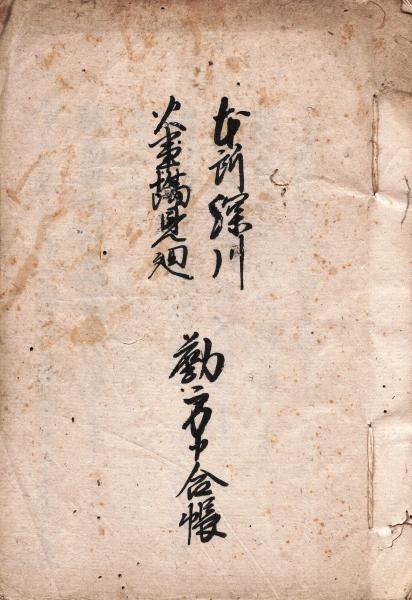 本所深川
火事場見廻
勤方申合帳